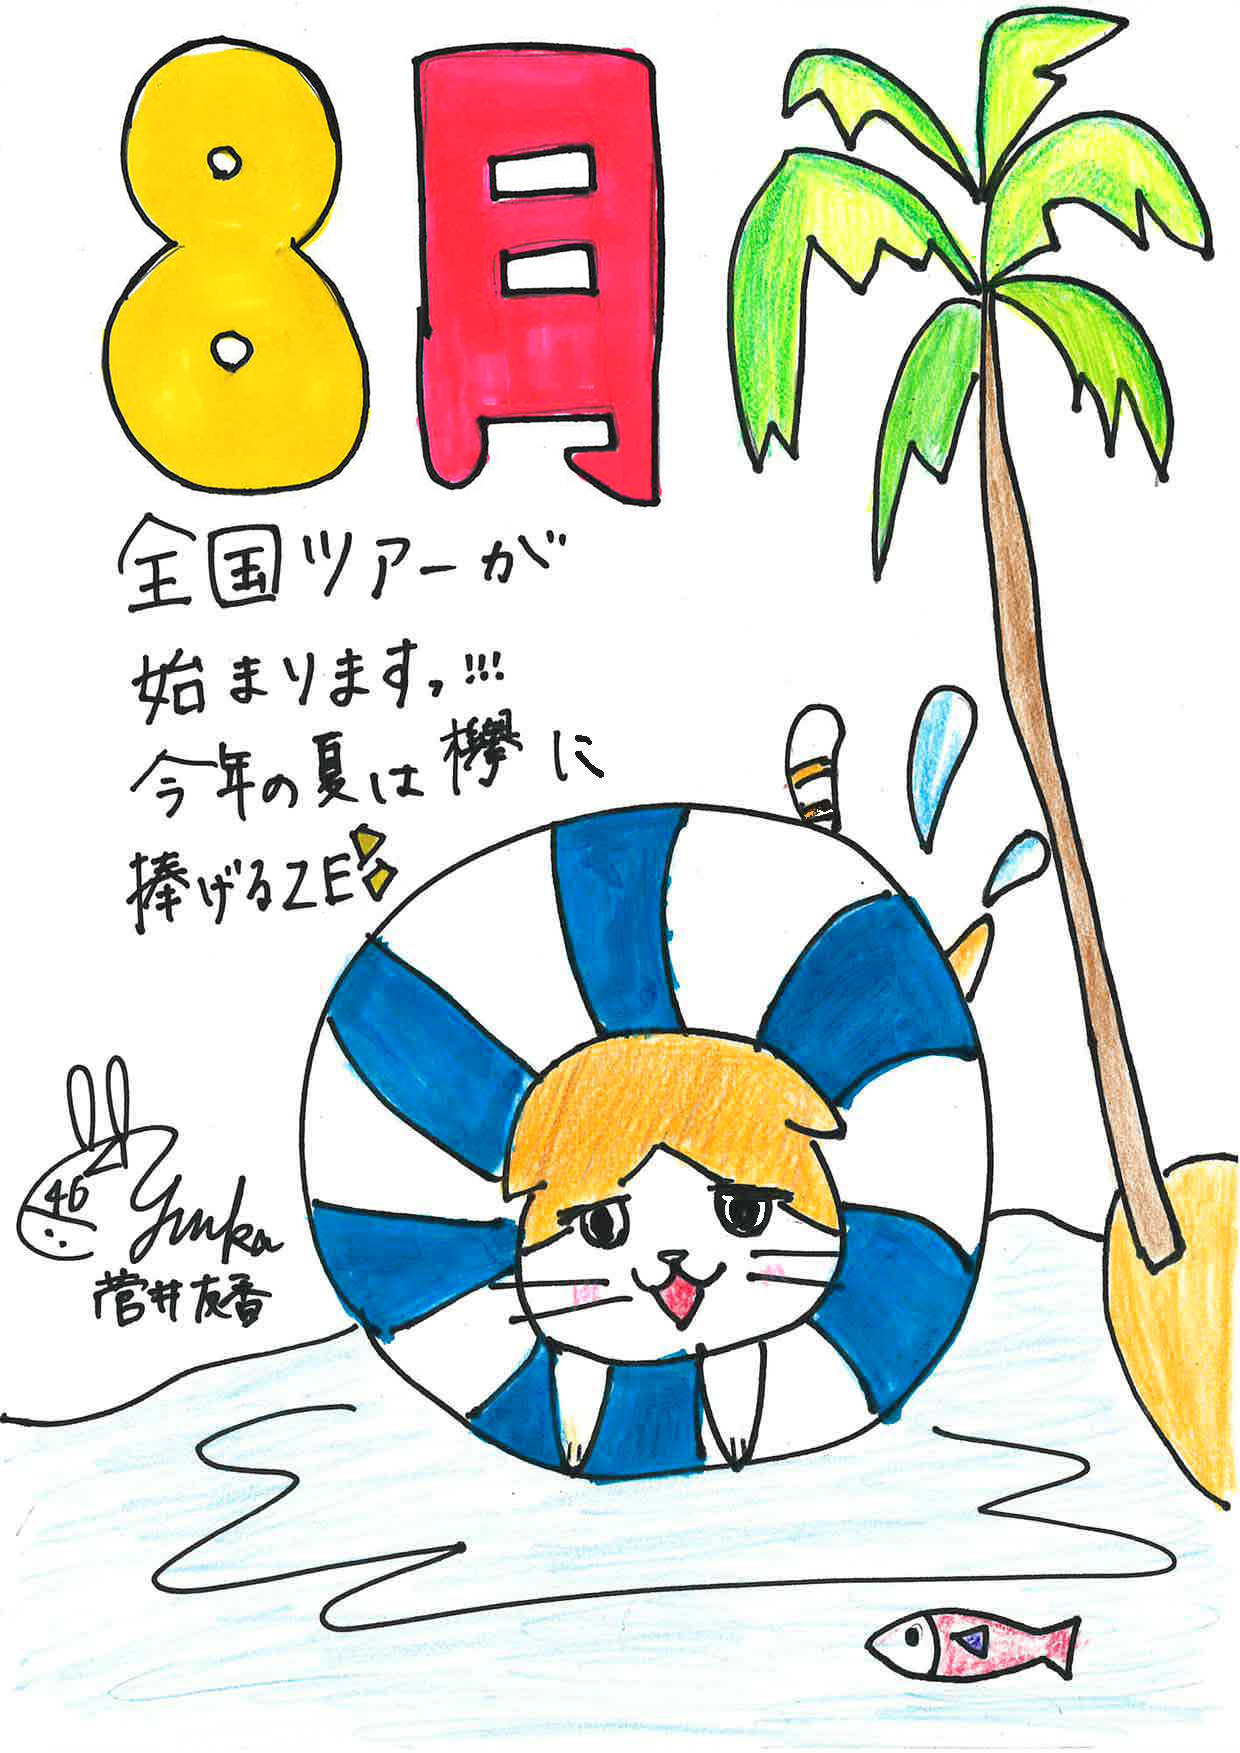 8月
全国ツアーが
始まります，!!!
今年の夏は欅に
捧げるZE
46
Yuuka
菅井友香